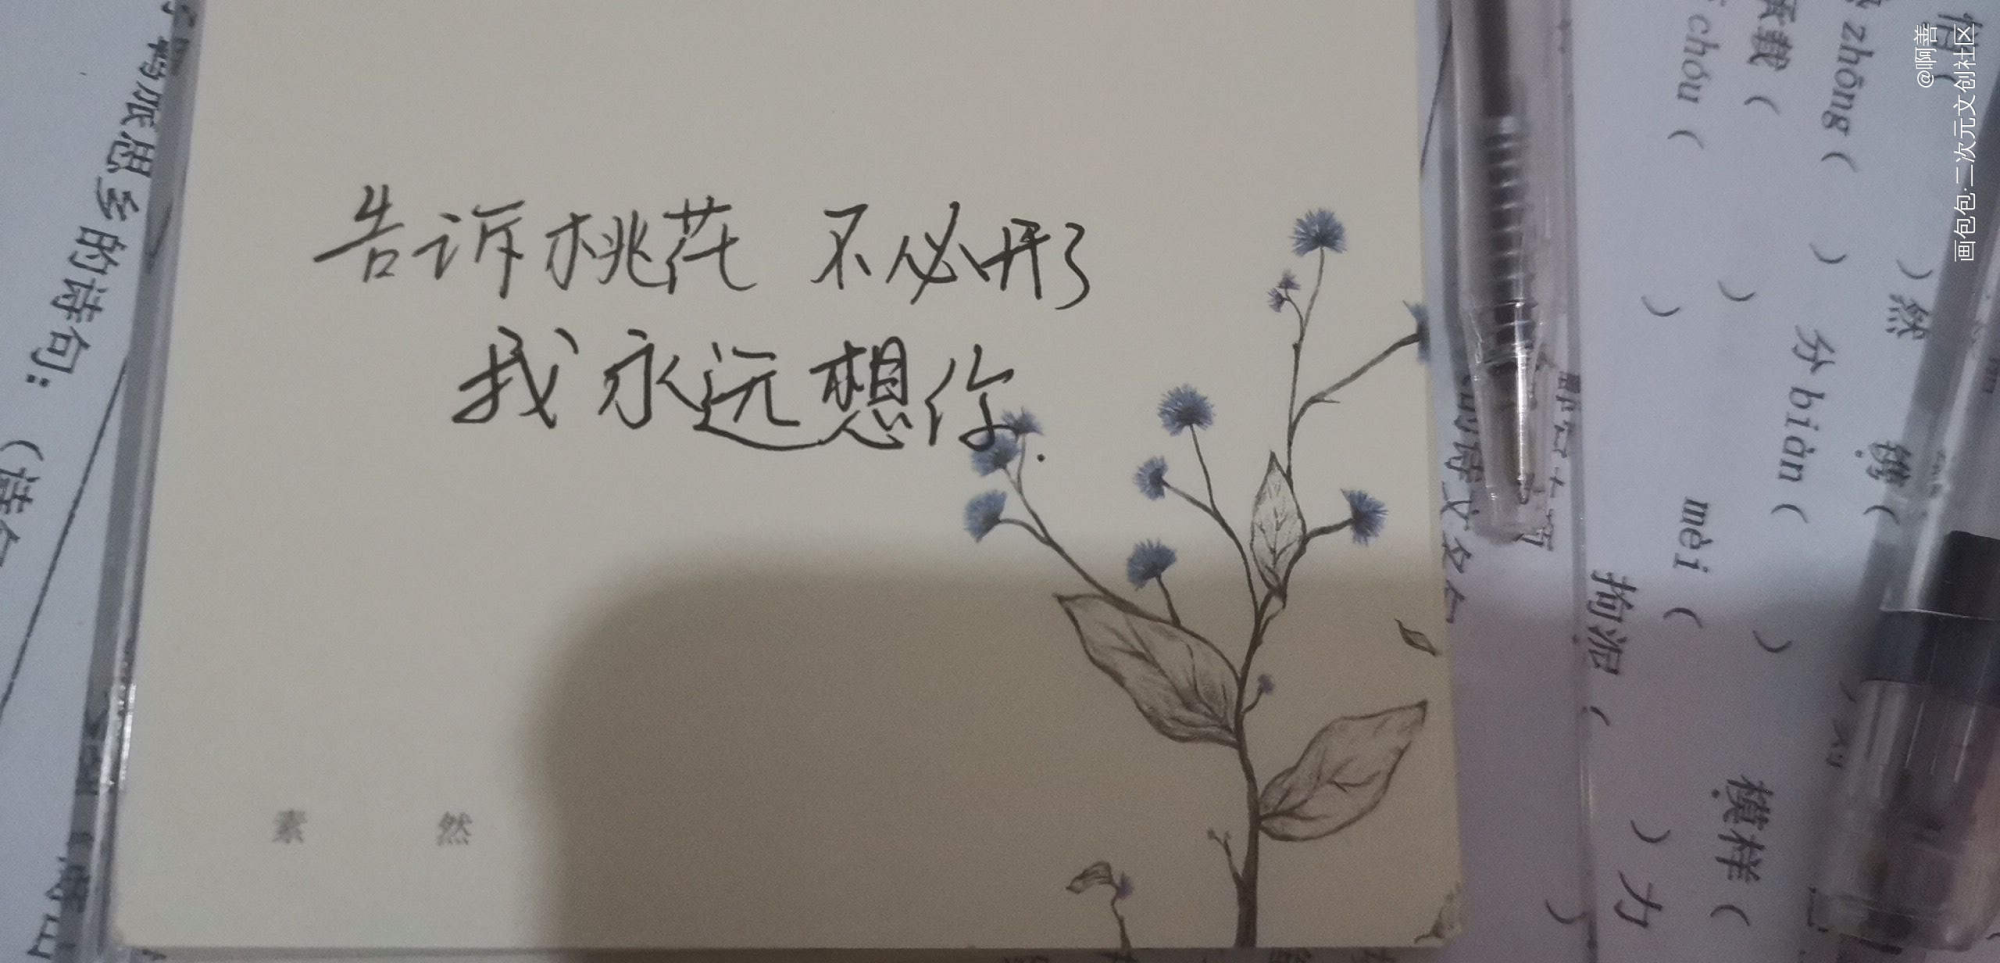 告诉桃花 不必开了
我永远想你.
素 然
思乡的诗句：
承载（
chóu（
zhōng（
）然
）分biàn（
mèi（
拘泥（
模样（
）力
@啊善
画包包·二次元文创社区